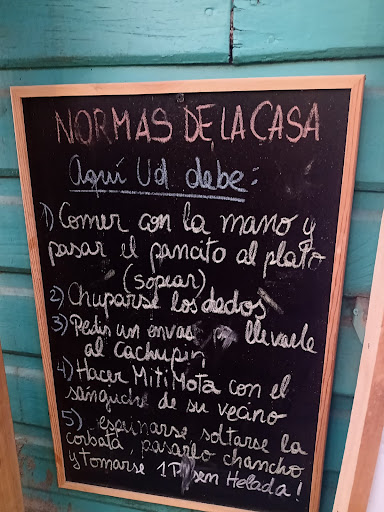 NORMAS DE LA CASA
Aquí Ud debe:
1) Comer con la mano y
pasar el pancito al plato
(sopear)
2) Chuparse los dedos
3) Pedir un envase p llevarle
al cachupin
4) Hacer Miti Mota con el
sanguche de su vecino
5) espinarse soltarse la
corbata, pasarlo chancho
y tomarse 1 Pilsen Helada!